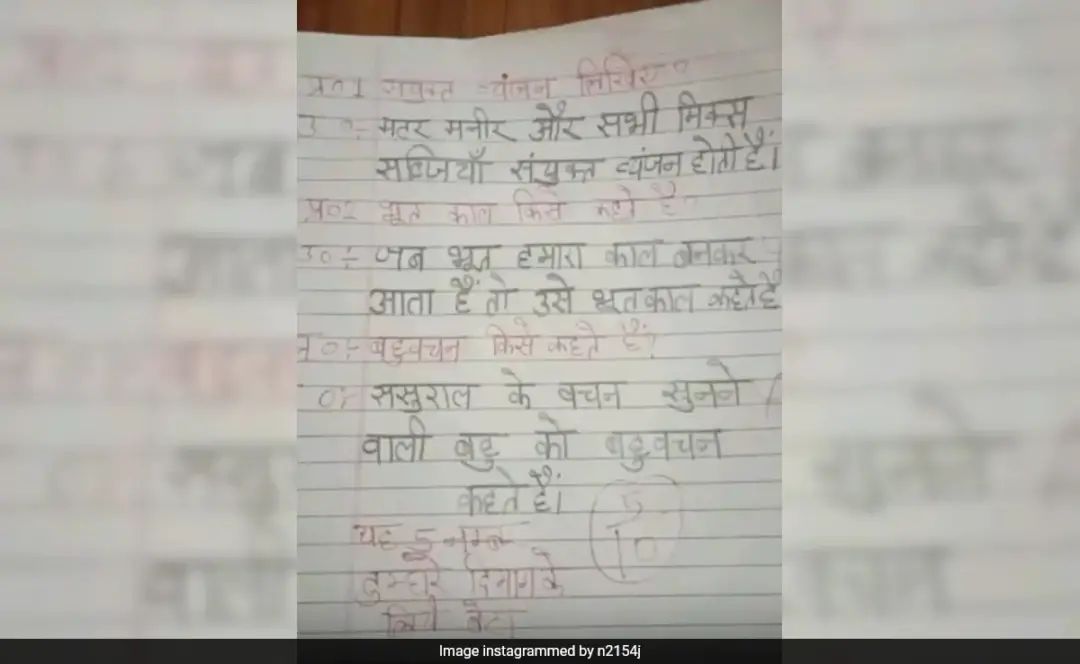 प्र०1 संयुक्त व्यंजन लिखिए०
उ०÷ मटर मनीर और सभी मिक्स
सब्जियाँ संयुक्त व्यंजन होती हैं।
प्र०2 भूत काल किसे कहते है?
उ०÷ जब भूत हमारा काल बनकर
आता हैं तो उसे भूतकाल कहते है
प्र०÷ बहुवचन किसे कहते हैं?
०÷ ससुराल के वचन सुनने
वाली बहु को बहुवचन
कहते हैं।
5
10
यह 5 नम्बर
तुम्हारे दिमाग के
लिये बेटा
Image instagrammed by n2154j